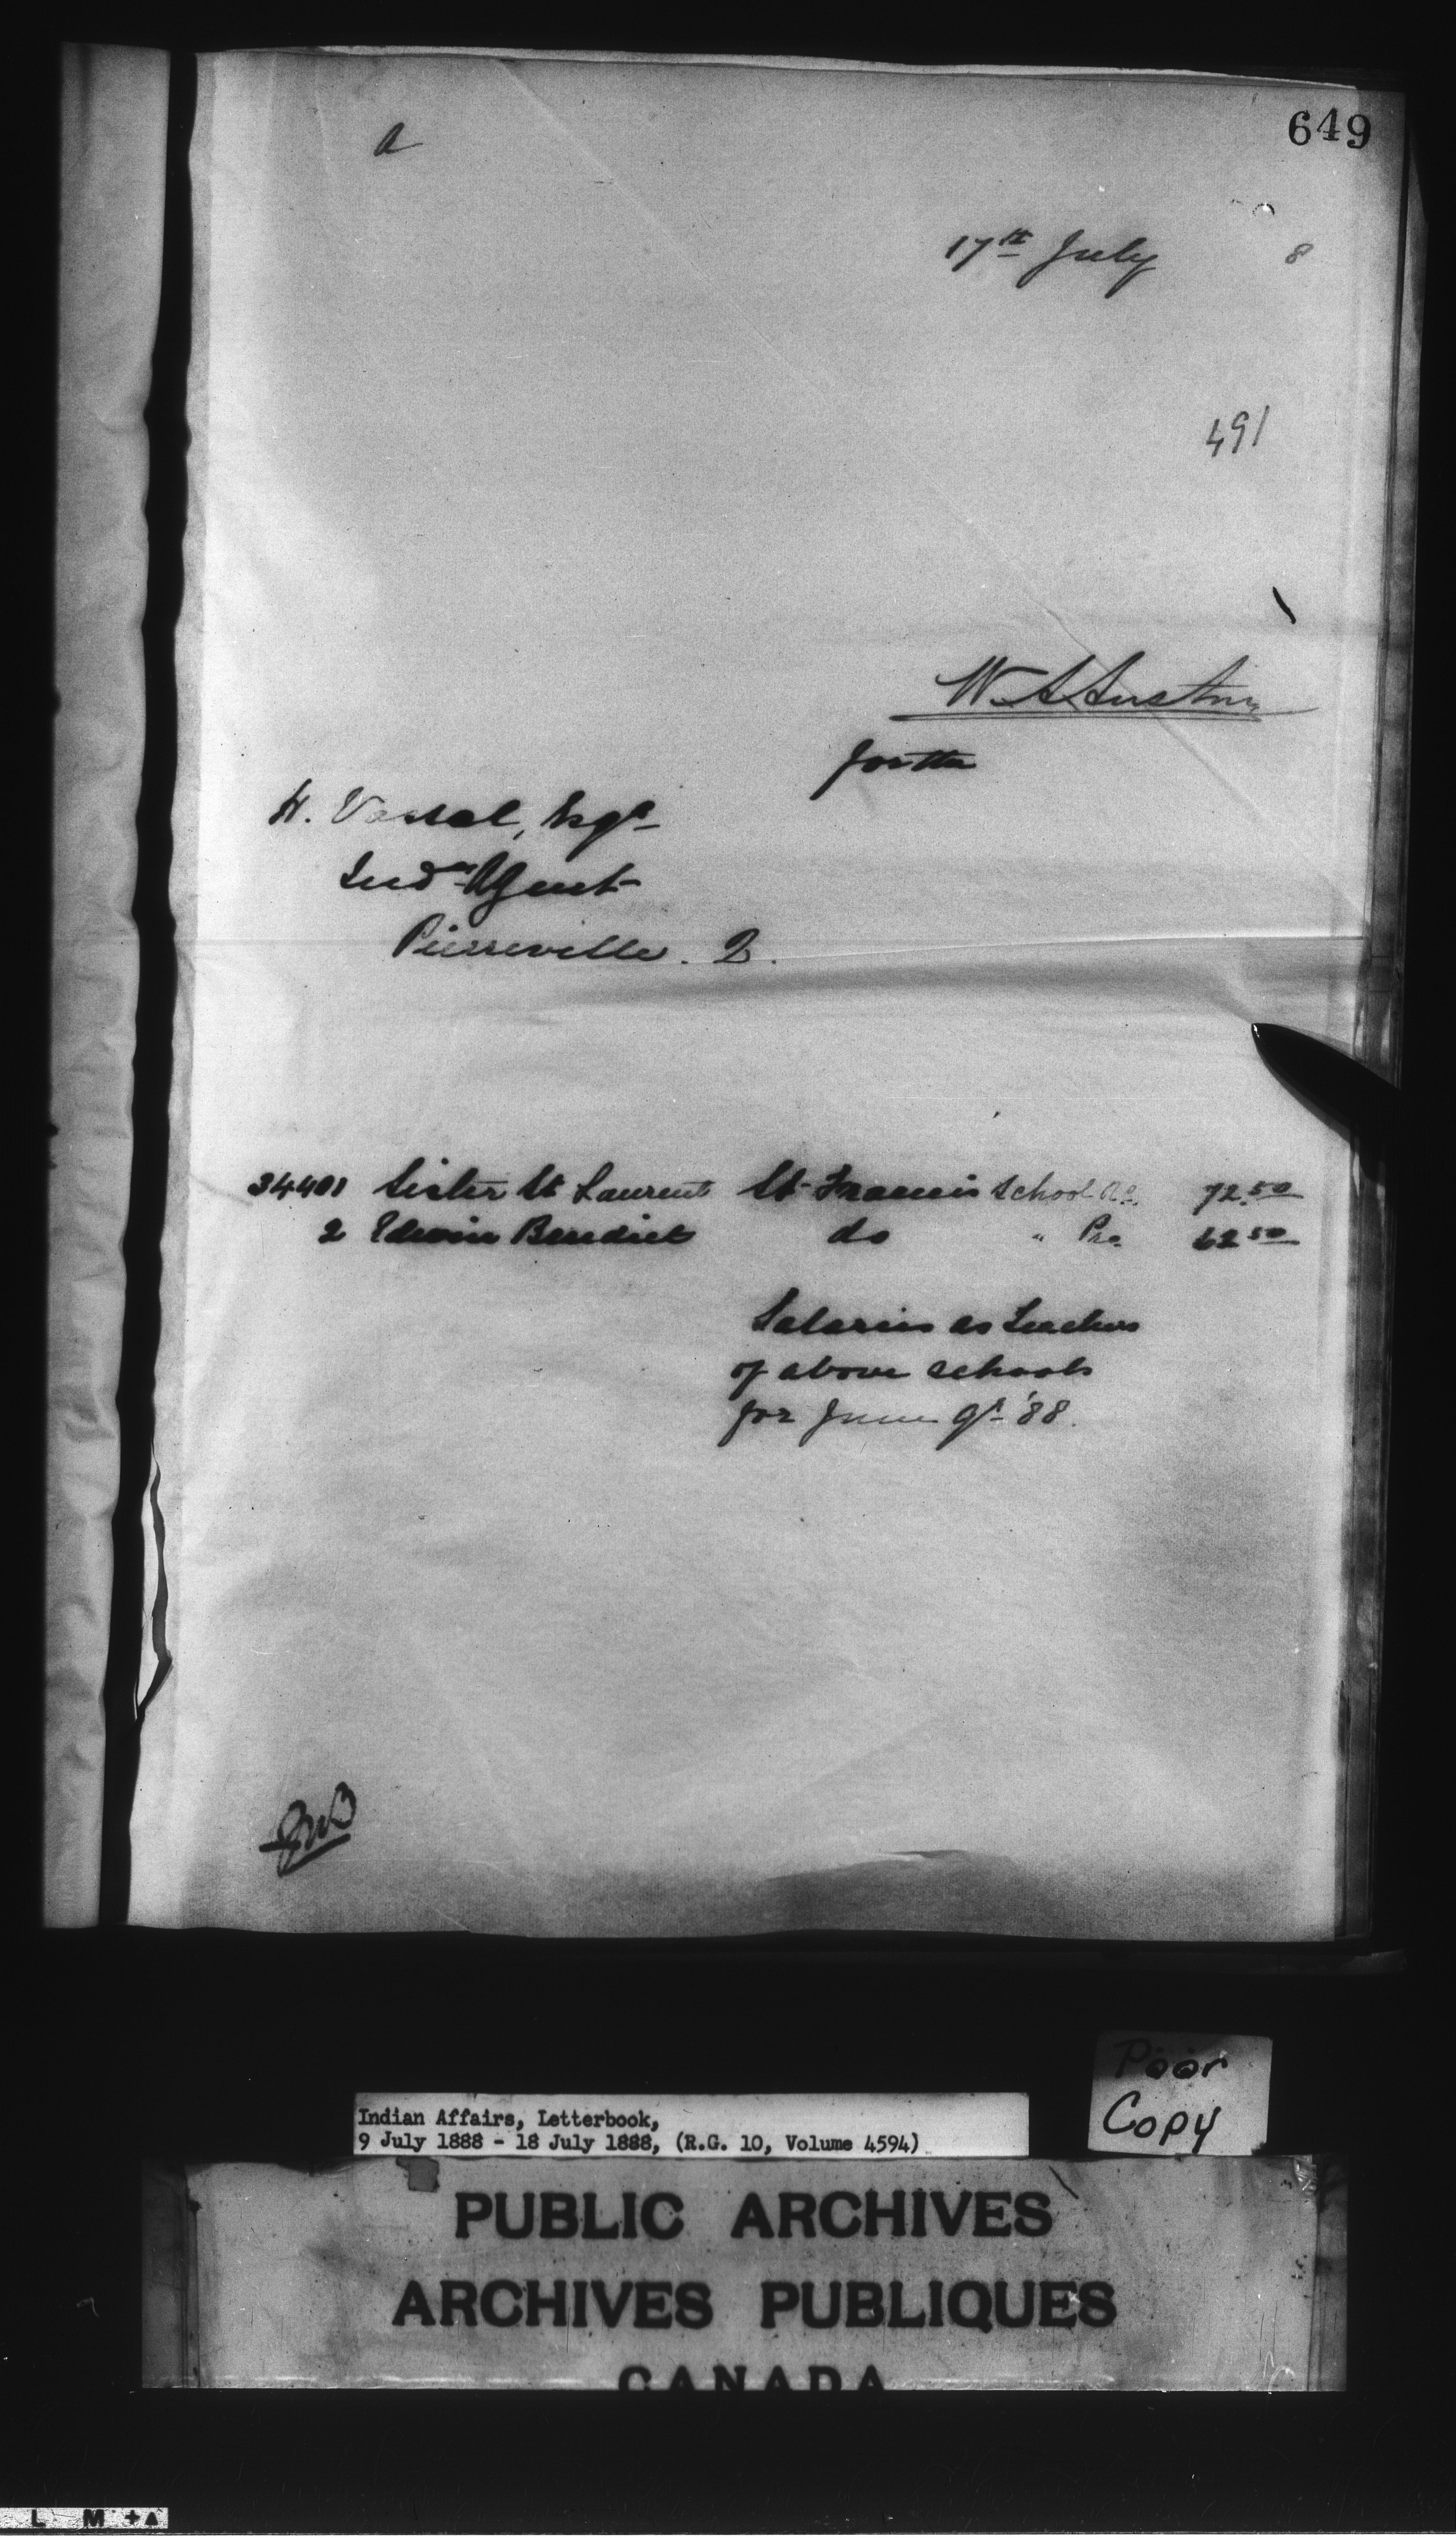 649
a
17th July 8
491
W. A. Austin
for the
H. Vassal, Esqr
Indn Agent
Pierreville. Q.
34401 Sister St Laurent St Francis School R.C. 72.50
2 Edwin Benedict do " Pro. 62.50
Salaries as Teachers
of above schools
for June qr '88.
Poor
Copy
Indian Affairs, Letterbook,
9 July 1888 - 18 July 1888, (R.G. 10, Volume 4594)
PUBLIC ARCHIVES
ARCHIVES PUBLIQUES
CANADA